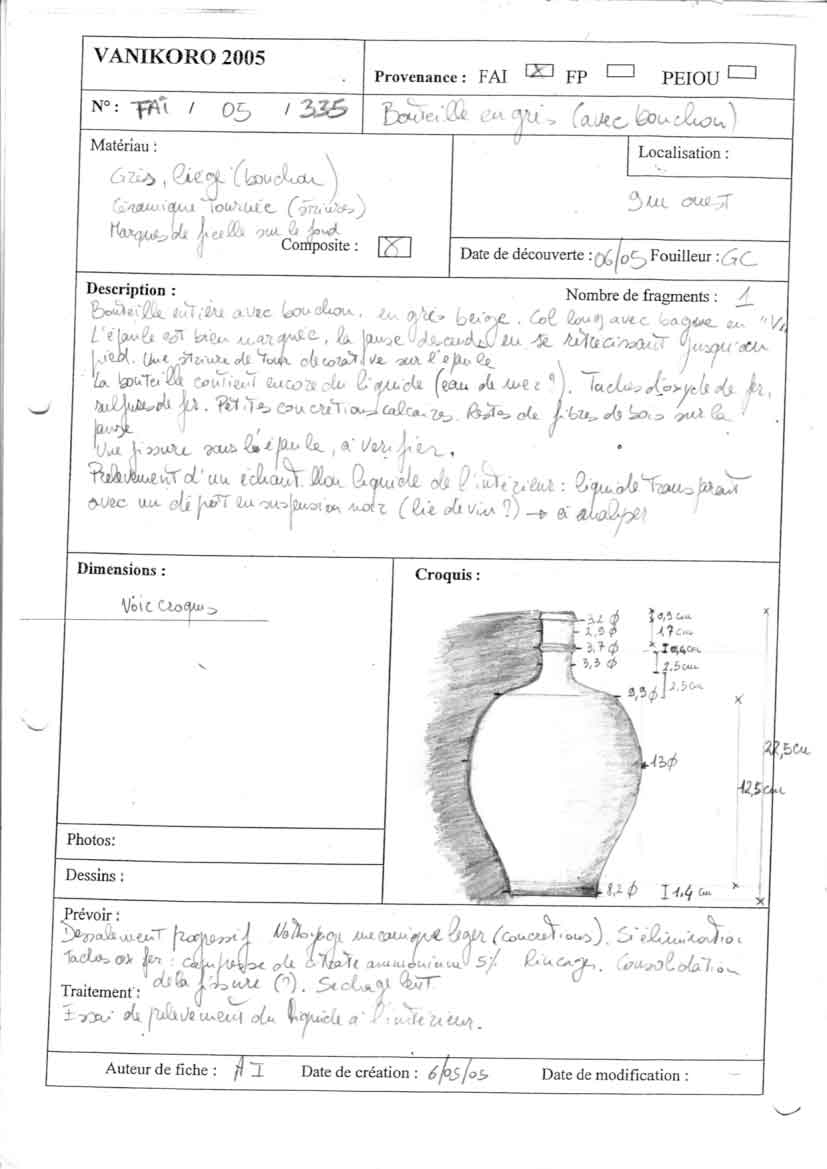 VANIKORO 2005
Provenance : FAI ☒ FP ☐ PEIOU ☐
N° : FAI / 05 / 335
Bouteille en grès (avec bouchon)
Matériau :
Grès, liège (bouchon)
Céramique tournée (striures)
Marques de ficelle sur le fond
Composite : ☒
Localisation :
9m ouest
Date de découverte : 06/05 Fouilleur : GC
Description :
Nombre de fragments : 1
Bouteille entière avec bouchon, en grès beige. Col long avec bague en "V"
L'épaule est bien marquée, la panse descend en se rétrécissant jusqu'au
pied. Une striure de tour décorative sur l'épaule
La bouteille contient encore du liquide (eau de mer ?). Taches d'oxyde de fer,
sulfures de fer. Petites concrétions calcaires. Restes de fibres de bois sur la
panse
Une fissure sous l'épaule, à vérifier.
Prélèvement d'un échantillon liquide de l'intérieur : liquide transparent
avec un dépôt en suspension noir (lie de vin ?) → à analyser
Dimensions :
Voir croquis
Croquis :
3,2 ø
2,9 ø
3,7 ø
3,3 ø
9,9 ø
13 ø
8,2 ø
0,9 cm
1,7 cm
0,4 cm
2,5 cm
2,5 cm
22,5 cm
12,5 cm
1,4 cm
Photos:
Dessins :
Prévoir :
Dessalement progressif Nettoyage mécanique léger (concrétions). Si élimination
taches ox fer : compresse de citrate ammonium 5% Rinçages. Consolidation
de la fissure (?). Séchage lent.
Traitement :
Essai de prélèvement du liquide à l'intérieur.
Auteur de fiche : AI Date de création : 6/05/05 Date de modification : –